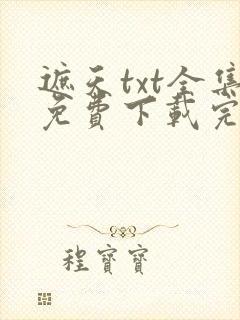 遮天txt全集
免费下载完
程寶寶